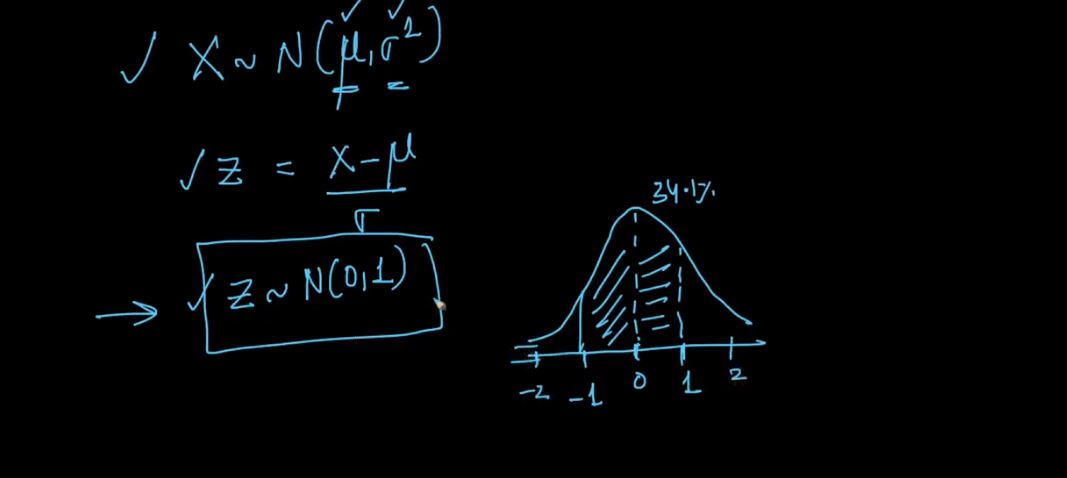 ✓ X ~ N(μ, σ²)
✓ Z = (X - μ) / σ
→ ✓ Z ~ N(0,1)
34.1%
-2 -1 0 1 2